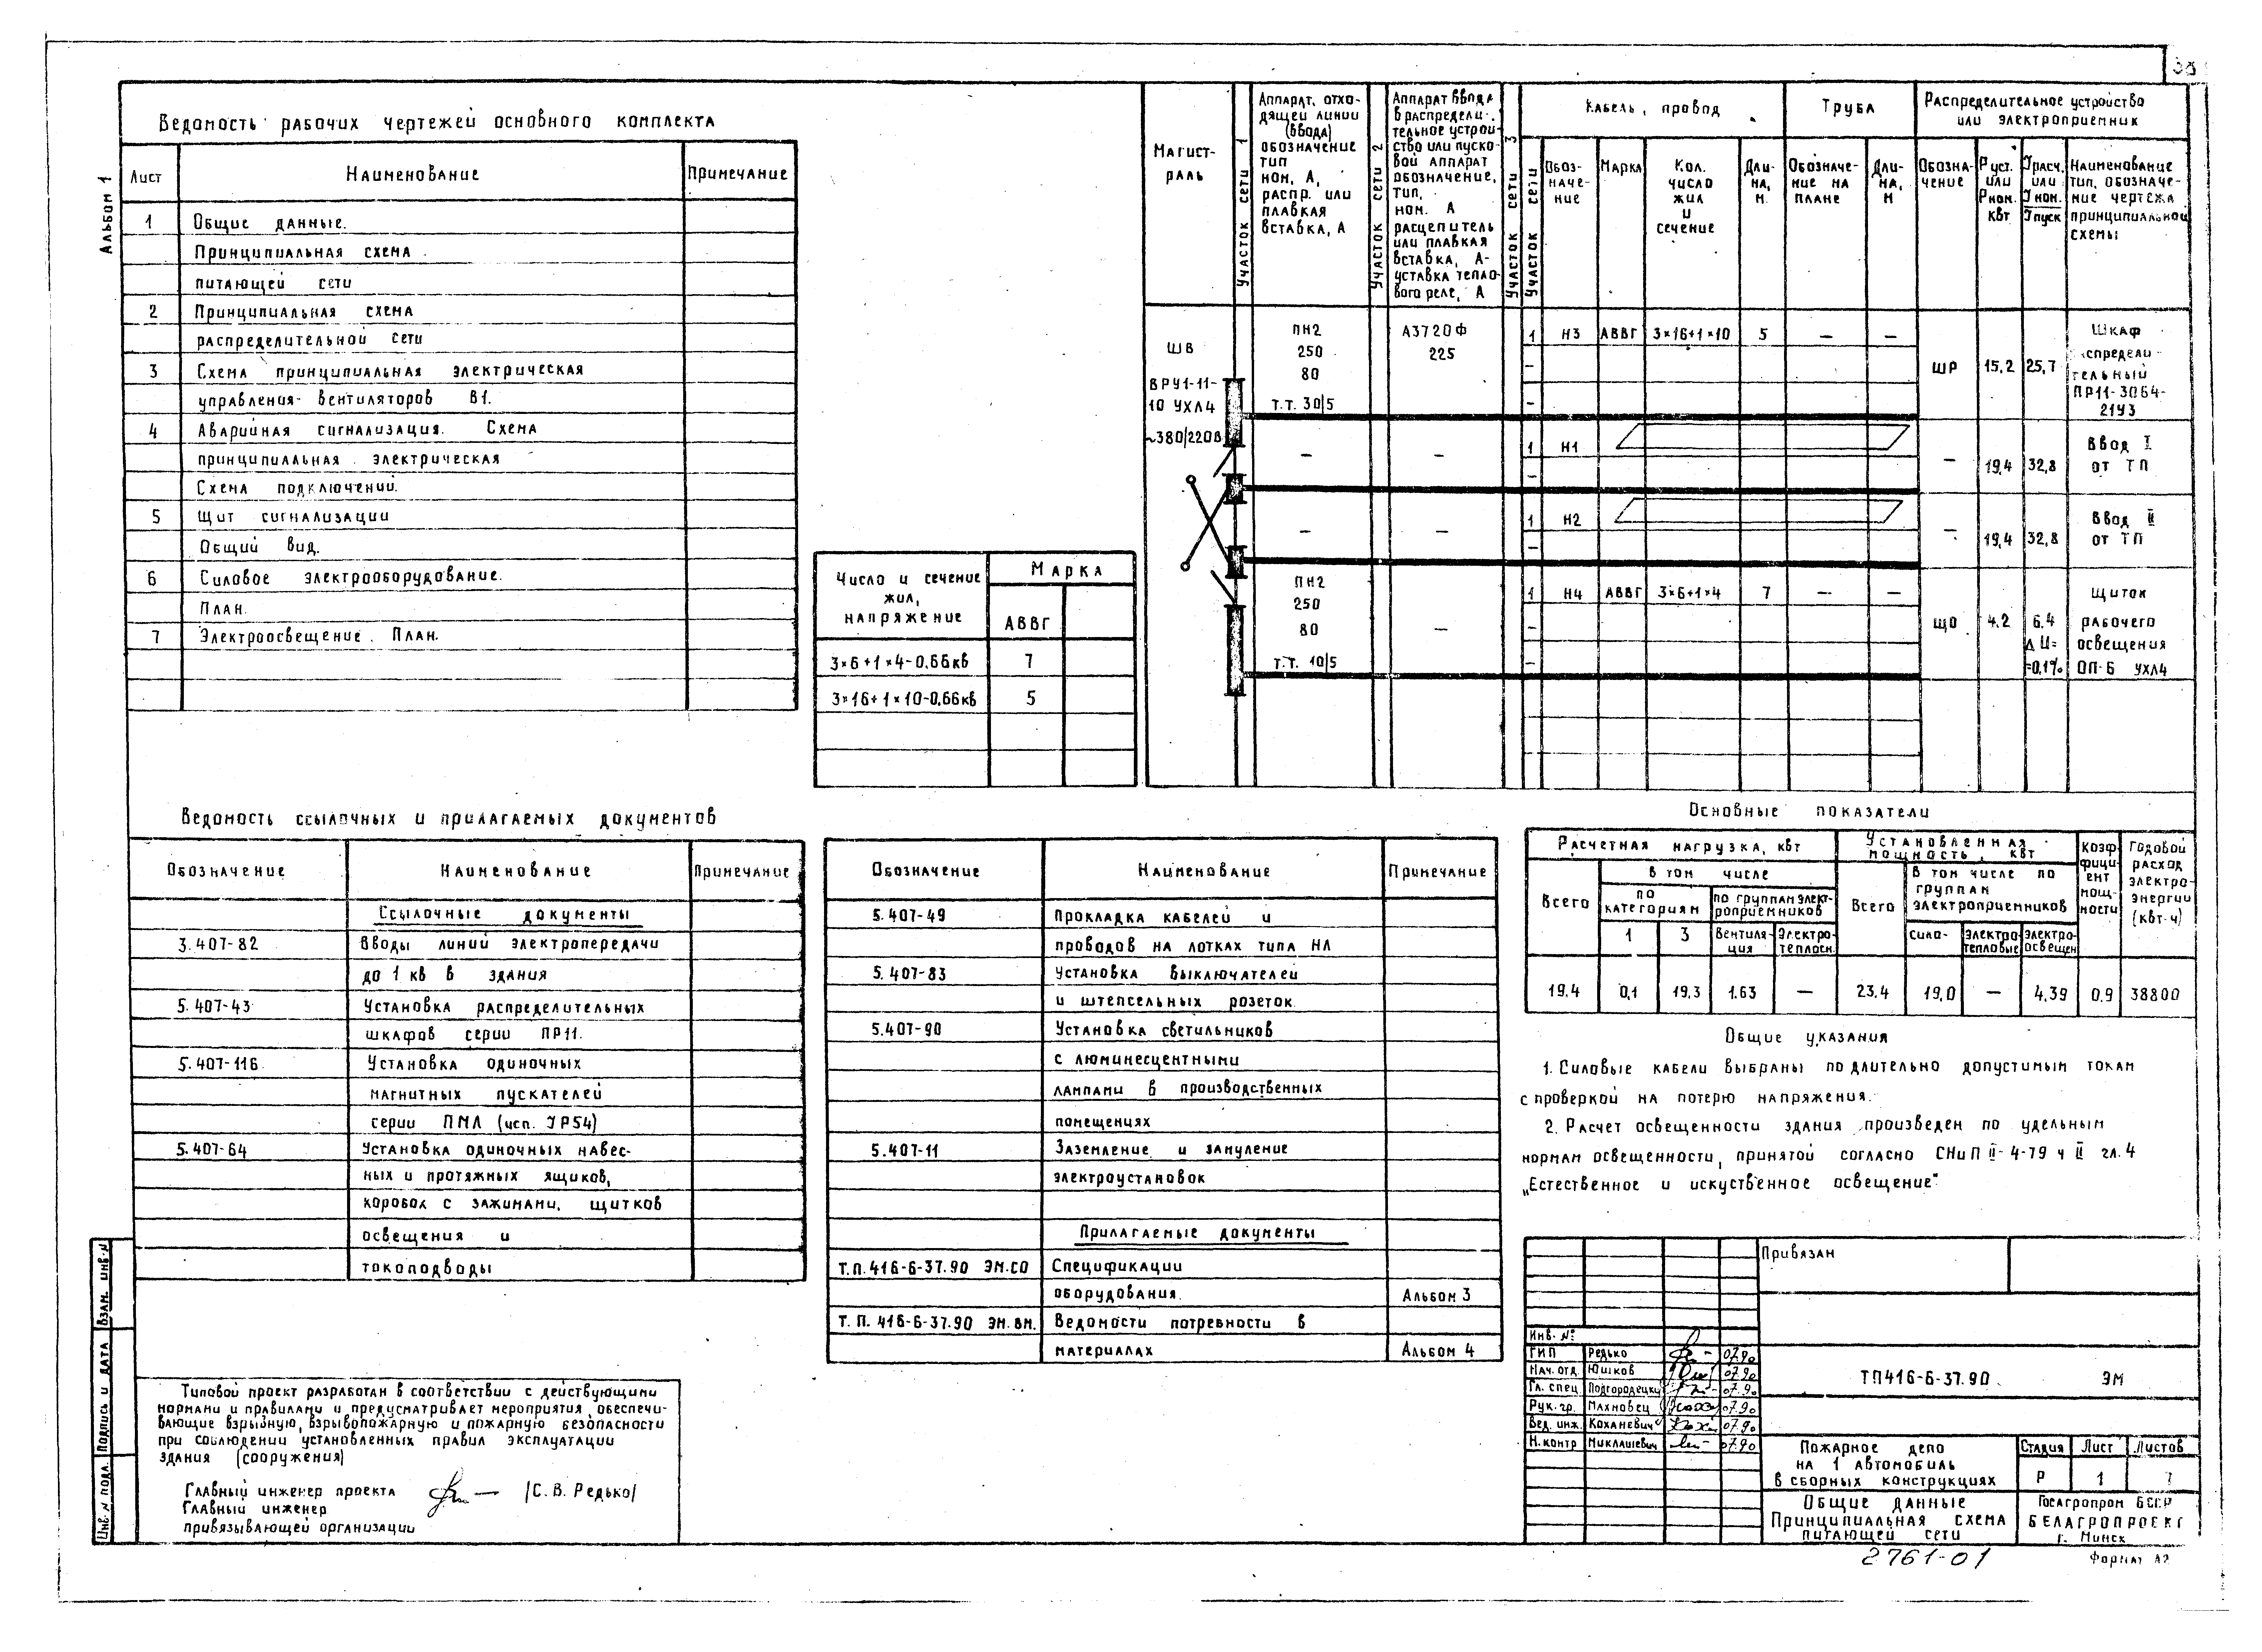 Альбом 1
Ведомость рабочих чертежей основного комплекта
Лист Наименование Примечание
1 Общие данные.
Принципиальная схема
питающей сети
2 Принципиальная схема
распределительной сети
3 Схема принципиальная электрическая
управления вентиляторов В1.
4 Аварийная сигнализация. Схема
принципиальная электрическая
Схема подключений.
5 Щит сигнализации
Общий вид.
6 Силовое электрооборудование.
План.
7 Электроосвещение. План.
Число и сечение жил, напряжение
Марка
АВВГ
3×6+1×4-0,66кв 7
3×16+1×10-0,66кв 5
Магист-
раль
Участок сети 1
Аппарат, отхо-
дящей линии
(ввода)
обозначение
тип
ном, А,
распр. или
плавкая
вставка, А
Участок сети 2
Аппарат ввода
в распредели-
тельное устрой-
ство или пуско-
вой аппарат
обозначение,
тип,
ном. А
расцепитель
или плавкая
вставка, А-
уставка тепло-
вого реле, А
Участок сети 3
Участок сети
Кабель, провод
Обоз-
наче-
ние
Марка
Кол.
число
жил
и
сечение
Дли-
на,
м
Труба
Обозначе-
ние на
плане
Дли-
на,
м
Распределительное устройство
или электроприемник
Обозна-
чение
Руст.
или
Рном.
квт
Iрасч.
или
Iном.
Iпуск
Наименование
тип, обозначе-
ние чертежа
принципиальной
схемы
ШВ
ВРУ1-11-
10 УХЛ4
~380/220в
ПН2
250
80
т.т. 30/5
А3720Ф
225
1 Н3 АВВГ 3×16+1×10 5 — —
ШР 15,2 25,7
Шкаф
спредели-
тельный
ПР11-3064-
21У3
— — 1 Н1 — 19,4 32,8
Ввод I
от ТП
— — 1 Н2 — 19,4 32,8
Ввод II
от ТП
ПН2
250
80
т.т. 10/5
—
1 Н4 АВВГ 3×6+1×4 7 — —
ЩО 4.2 6.4
ΔU=
=0,1%
Щиток
рабочего
освещения
ОП-6 УХЛ4
Ведомость ссылочных и прилагаемых документов
Обозначение Наименование Примечание
Ссылочные документы
3.407-82 Вводы линий электропередачи
до 1 кв в здания
5.407-43 Установка распределительных
шкафов серии ПР11.
5.407-116 Установка одиночных
магнитных пускателей
серии ПМЛ (исп. IP54)
5.407-64 Установка одиночных навес-
ных и протяжных ящиков,
коробок с зажимами, щитков
освещения и
токоподводы
Обозначение Наименование Примечание
5.407-49 Прокладка кабелей и
проводов на лотках типа НЛ
5.407-83 Установка выключателей
и штепсельных розеток
5.407-90 Установка светильников
с люминесцентными
лампами в производственных
помещениях
5.407-11 Заземление и зануление
электроустановок
Прилагаемые документы
Т.П.416-6-37.90 ЭМ.СО Спецификации
оборудования. Альбом 3
Т.П. 416-6-37.90 ЭМ.ВМ. Ведомости потребности в
материалах Альбом 4
Основные показатели
Расчетная нагрузка, квт
Всего
в том числе
по
категориям
1 3
по группам элект-
роприемников
Вентиля-
ция
Электро-
теплосн.
Установленная
мощность, квт
Всего
в том числе по
группам
электроприемников
сило-
электро-
тепловые
электро-
освещен
Коэф
фици-
ент
мощ-
ности
Годовой
расход
электро-
энергии
(квт·ч)
19.4 0,1 19,3 1.63 — 23.4 19,0 — 4,39 0.9 38800
Общие указания
1. Силовые кабели выбраны по длительно допустимым токам
с проверкой на потерю напряжения.
2. Расчет освещенности здания произведен по удельным
нормам освещенности, принятой согласно СНиП II-4-79 ч II гл.4
„Естественное и искуственное освещение".
Типовой проект разработан в соответствии с действующими
нормами и правилами и предусматривает мероприятия, обеспечи-
вающие взрывную, взрывопожарную и пожарную безопасности
при соблюдении установленных правил эксплуатации
здания (сооружения)
Главный инженер проекта /С.В. Редько/
Главный инженер
привязывающей организации
Инв.№ подл. Подпись и дата Взам. инв.№
Привязан
Инв. №
ГИП Редько 07.90
Нач. отд. Юшков 07.90
Гл. спец. Подгородецкий 07.90
Рук. гр. Махновец 07.90
Вед. инж. Коханевич 07.90
Н. контр Миклашевич 07.90
ТП416-6-37.90 ЭМ
Пожарное депо
на 1 автомобиль
в сборных конструкциях
Стадия Лист Листов
Р 1 7
Общие данные
Принципиальная схема
питающей сети
Госагропром БССР
БЕЛАГРОПРОЕКТ
г. Минск
2761-01
Формат А2